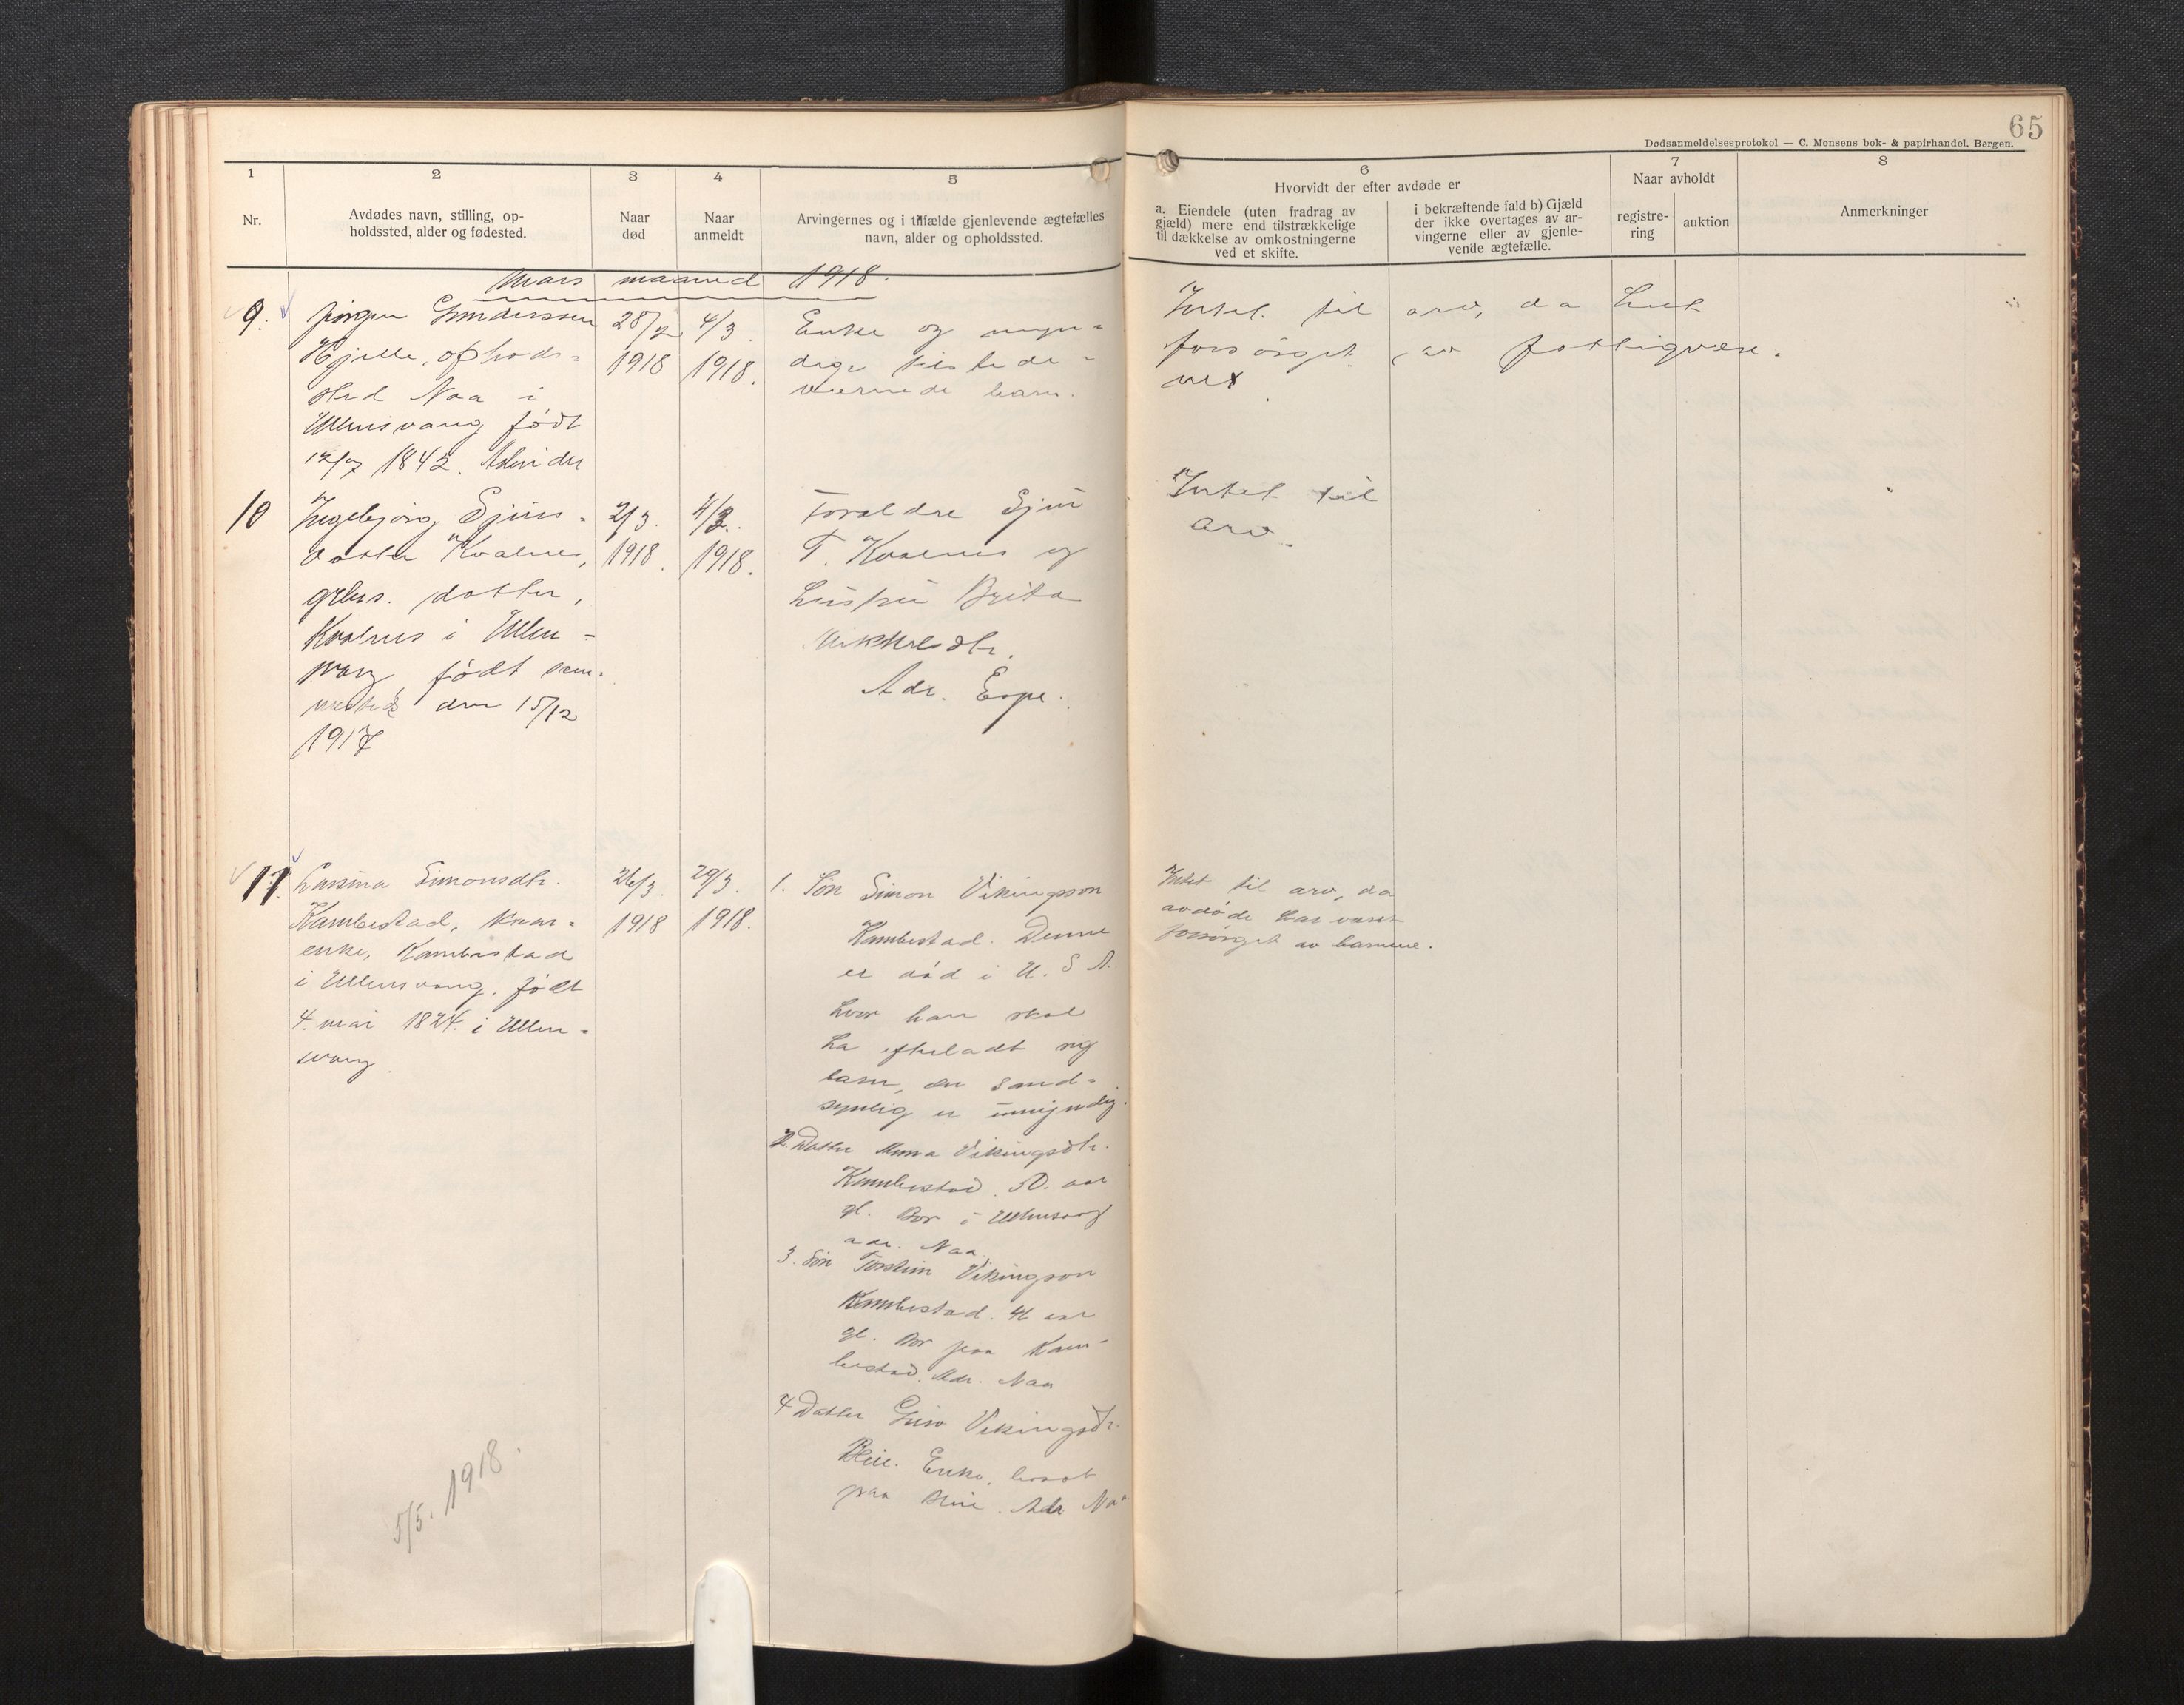 65
Dødsanmeldelsesprotokol — C. Monsens bok- & papirhandel. Bergen.
1
Nr.
2
Avdødes navn, stilling, op-
holdssted, alder og fødested.
3
Naar
død
4
Naar
anmeldt
5
Arvingernes og i tilfælde gjenlevende ægtefælles
navn, alder og opholdssted.
6
Hvorvidt der efter avdøde er
a. Eiendele (uten fradrag av
gjæld) mere end tilstrækkelige
til dækkelse av omkostningerne
ved et skifte.
i bekræftende fald b) Gjæld
der ikke overtages av ar-
vingerne eller av gjenle-
vende ægtefælle.
7
Naar avholdt
registre-
ring
auktion
8
Anmerkninger
Mars maaned 1918.
9.
Jørgen Gunderssen
Hjelle, opholds=
sted Naa i
Ullensvang født
1842.
28/2
1918
4/3
1918.
Enke og myn=
dige tilstede=
værende barn.
Intet til arv, da helt
forsørget av fattigvæse.
net.
10
Ingebjørg Sjurs=
datter Kvalnes,
grbrs. datter,
Kvalnes i Ullen=
svang født sam=
mesteds den 15/12
1917
2/3.
1918.
4/3.
1918.
Foraldre Sjur
T. Kvalnes og
hustru Brita
Adr. Espe.
Intet til
arv.
11.
Larsina Simonsdtr.
Kambestad, kaar=
enke, Kambestad
i Ullensvang, født
4. mai 1824. i Ullen=
svang
26/3.
1918
29/3.
1918.
1. Søn Simon Vikingsson
Kambestad. Denne
er død i U. S A.
hvor han skal
ha efterladt sig
barn, der sand=
synlig er umyndig.
2. Datter Anna Vikingsdtr.
Kambestad. 50. aar
gl. Bor i Ullensvang
adr. Naa.
3. Søn Torstein Vikingson
Kambestad. 46 aar
gl. Bor paa Kam-
bestad. Adr. Naa
4 Datter Guro Vikingsdtr.
Bleie. Enke, bosat
paa Bleie. Adr Naa
Intet til arv, da
avdøde har været
forsørget av barnene.
5/5. 1918.